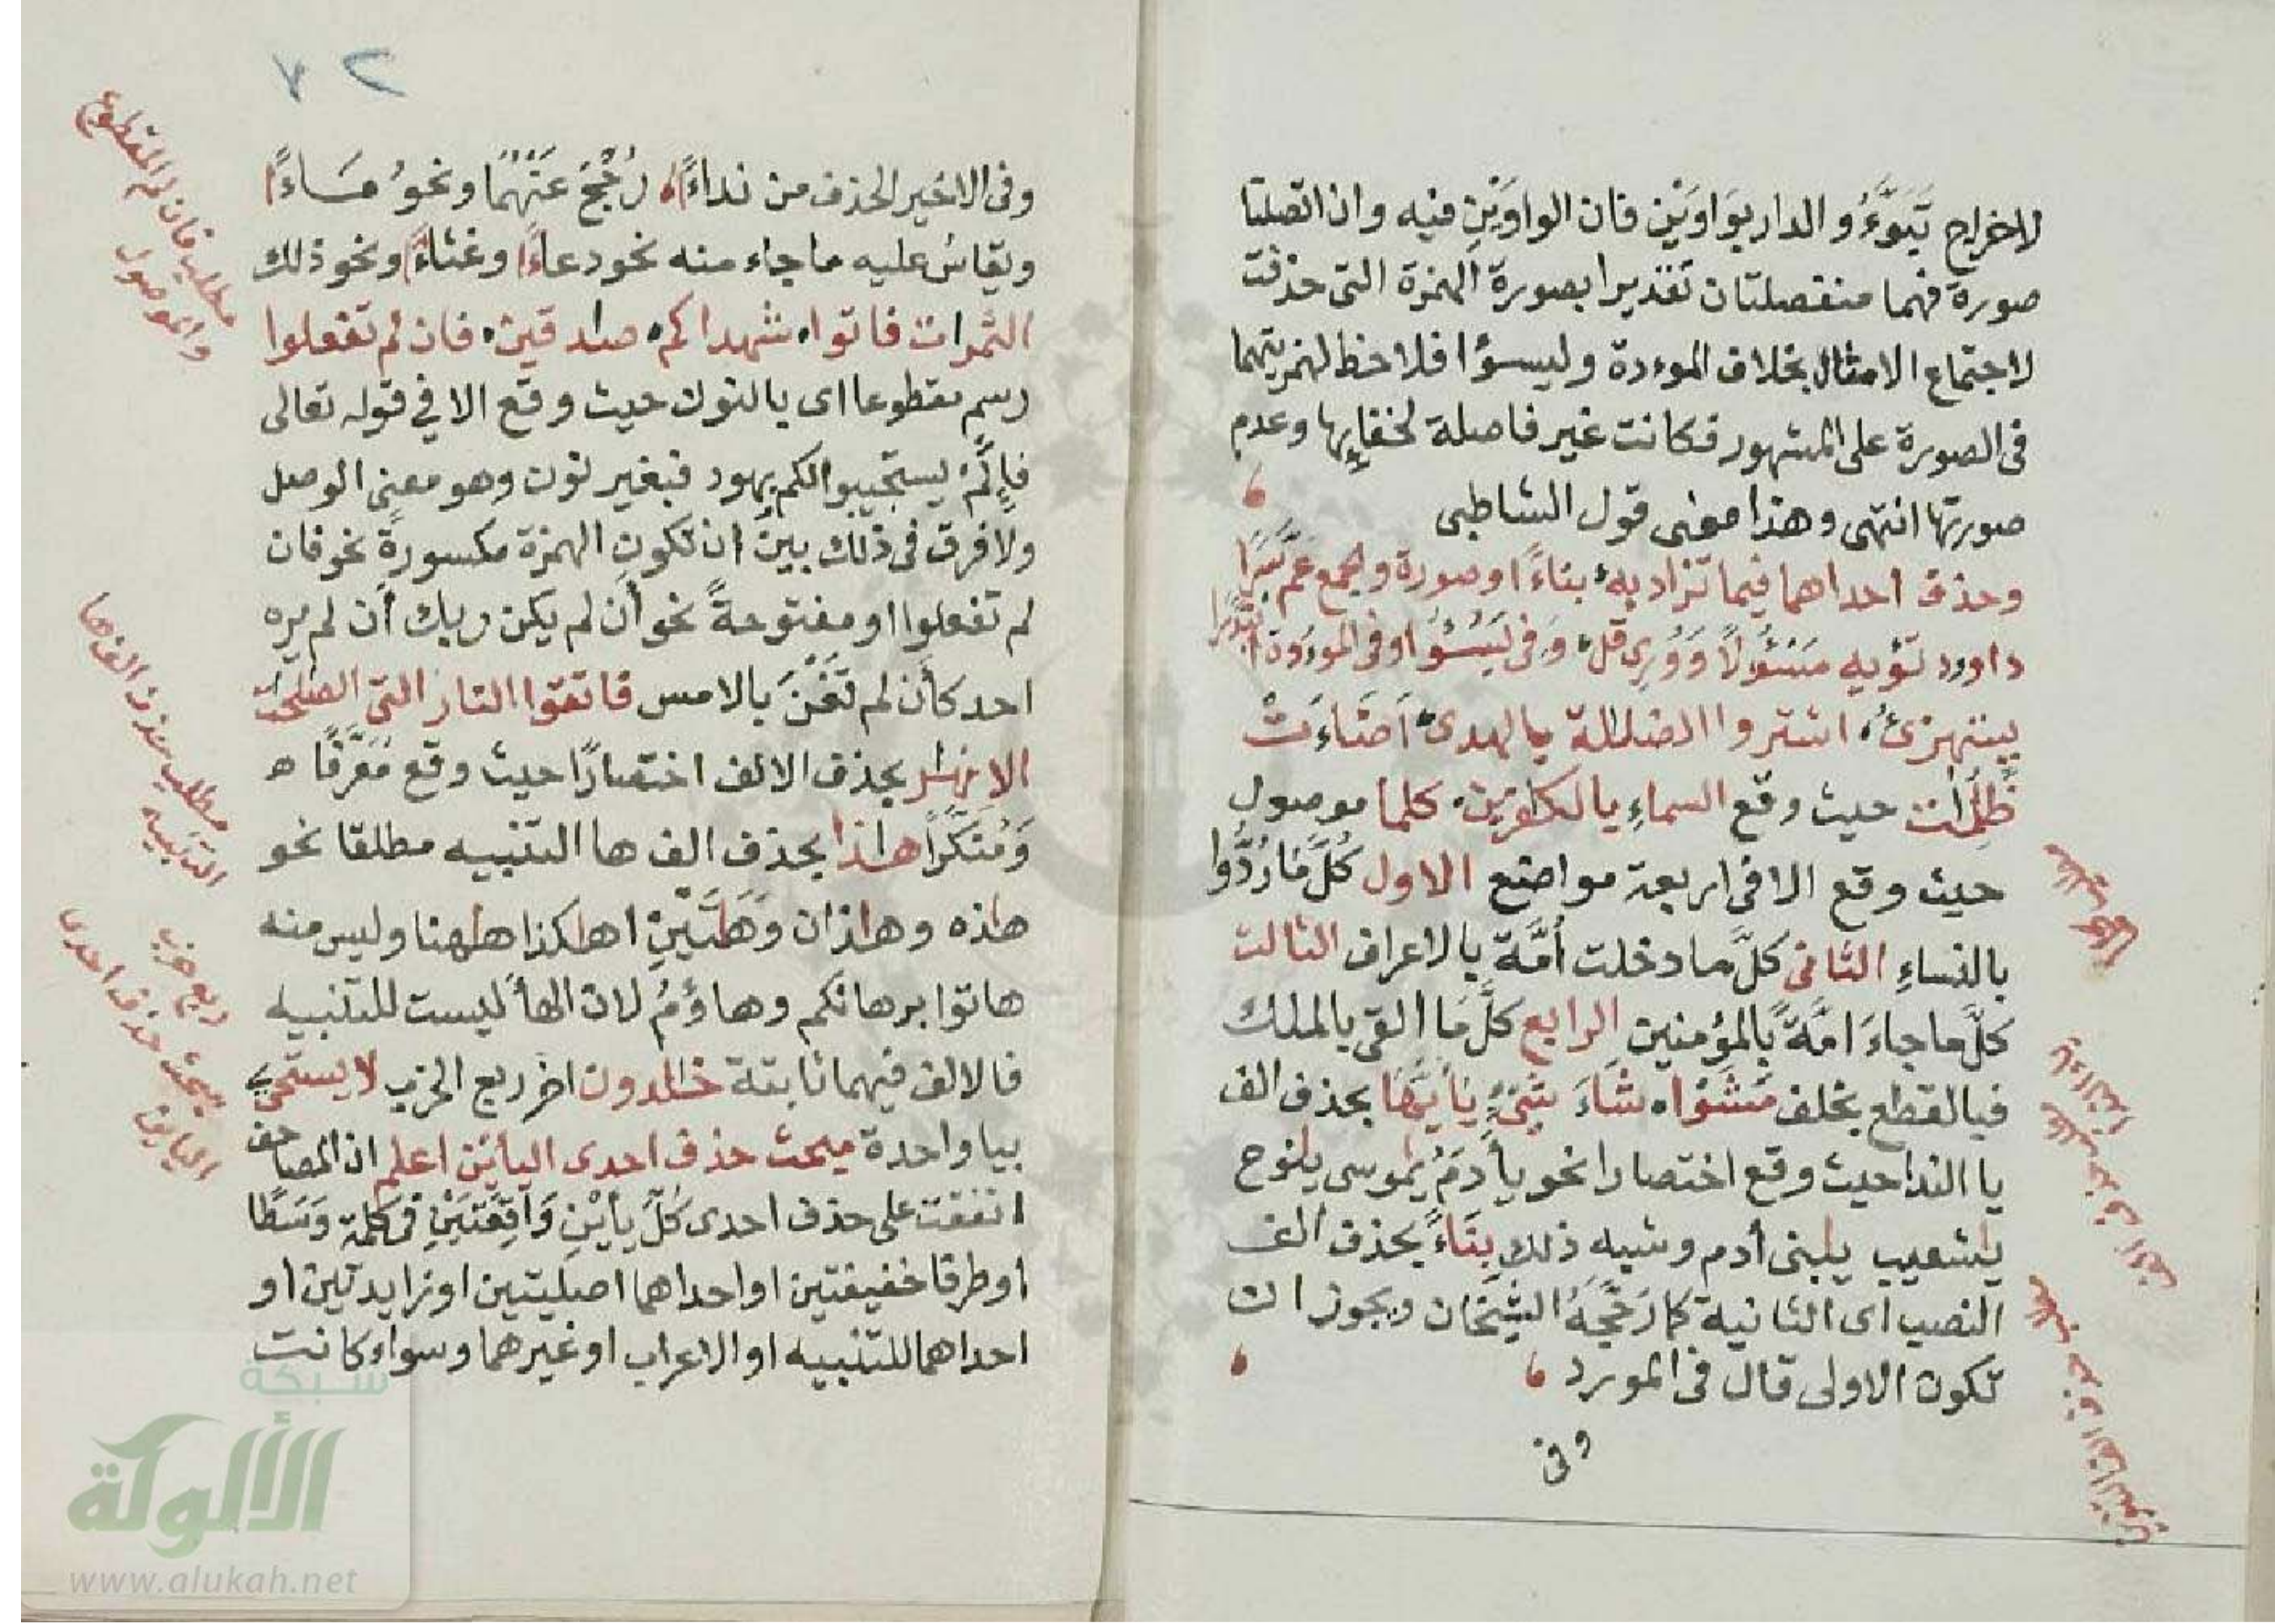 لاخراج تَبَوَّءُو الدار بوَاوَيْن فان الواوَيْنِ فيه وان اتصلتا
صورة فهما منفصلتان تقديرا بصورة الهمزة التى حذفت
لاجتماع الامثال بخلاف الموءدة وليسـوٴا فلاحظ لهمزتيهما
فى الصورة على المشهور فكانت غير فاصلة لخفايها وعدم
صورتها انتهى وهذا معنى قول الشاطبى
وحذف احداهما فيما تزاد به بناءً او صورة والجمع عمَّ سُرَا
داوود تؤيه مسْئُولاً وَوُرِى قل وفى ليَسُئوا وفى الموءُودة ابتدرا
يستهزئ اشتروا الضلالة بالهدى اَضَاءَتْ
ظلمات حيث وقع السماءِ بالكافرين كلما موصول
حيث وقع الا فى اربعة مواضع الاول كُلَّ مَا رُدُّوا
بالنساءِ الثانى كلَّ ما دخلت أُمَّة بالاعراف الثالث
كلَّ ما جاءَ امَّةً بالمؤمنين الرابع كلَّ مَا القى بالملك
فبالقطع بخلف مَشَوْاه شَاءَ شَىْءٍ يَاٰيُّهَا بحذف الف
يا الندا حيث وقع اختصارا نحو يأٰدَمُ يٰموسى يٰنوح
يٰشعيب يٰبنى أدم وشبه ذلك بِنَاءً بحذف الف
النصب اى الثانية كما رَجَّحَهُ الشيخان ويجوز ان
تكون الاولى قال فى المورد
وفى
٧٢
وفى الاخير الحذف من نداءً رُجِّحَ عَنْهُمَا ونحوُ مَاءً
ويقاسُ عليه ما جاء منه نحو دعاءً وغثاءً ونحو ذلك
الثمرات فاتوا شهداكم صادقين فان لم تفعلوا
رسم مقطوعا اى بالنون حيث وقع الا في قوله تعالى
فَإِلَّمْ يستجيبوا لكم بهود فبغير نون وهو معنى الوصل
ولا فرق فى ذلك بين ان تكون الهمزة مكسورةً نحو فان
لم تفعلوا او مفتوحةً نحو أن لم يكن ربك أن لم يره
احد كأن لم تَغْنَ بالامس فاتقوا النار التى الصلحت
الانهٰر بحذف الالف اختصارًا حيث وقع مُعَرَّفًا
وَمُنَكَّرًا هٰذا بحذف الف ها التنبيه مطلقا نحو
هٰذه وهٰذان وَهٰتَيْنِ اهٰكذا هٰهنا وليس منه
هاتوا برهانكم وهاؤمُ لان الهأ ليست للتنبيه
فالالف فيهما ثابتة خٰلدون اخر ربع الحزب لا يستحى
بيا واحدة مبحث حذف احدى اليائين اعلم ان المصاحف
اتفقت على حذف احدى كُلّ يأيْنِ وَاقِعَتَيْنِ فى كلمة وَسَطًا
او طرفا خفيفتين او احداهما اصليتين او زايدتين او
احداهما للتنبيه او الاعراب او غيرهما وسواء كانت
مطلب فان لم المقطوع
والموصول
مطلب حذف الف ها
التنبيه
ربع حزب
مبحث حذف احدى
اليائين
شبكة
الألوكة
www.alukah.net